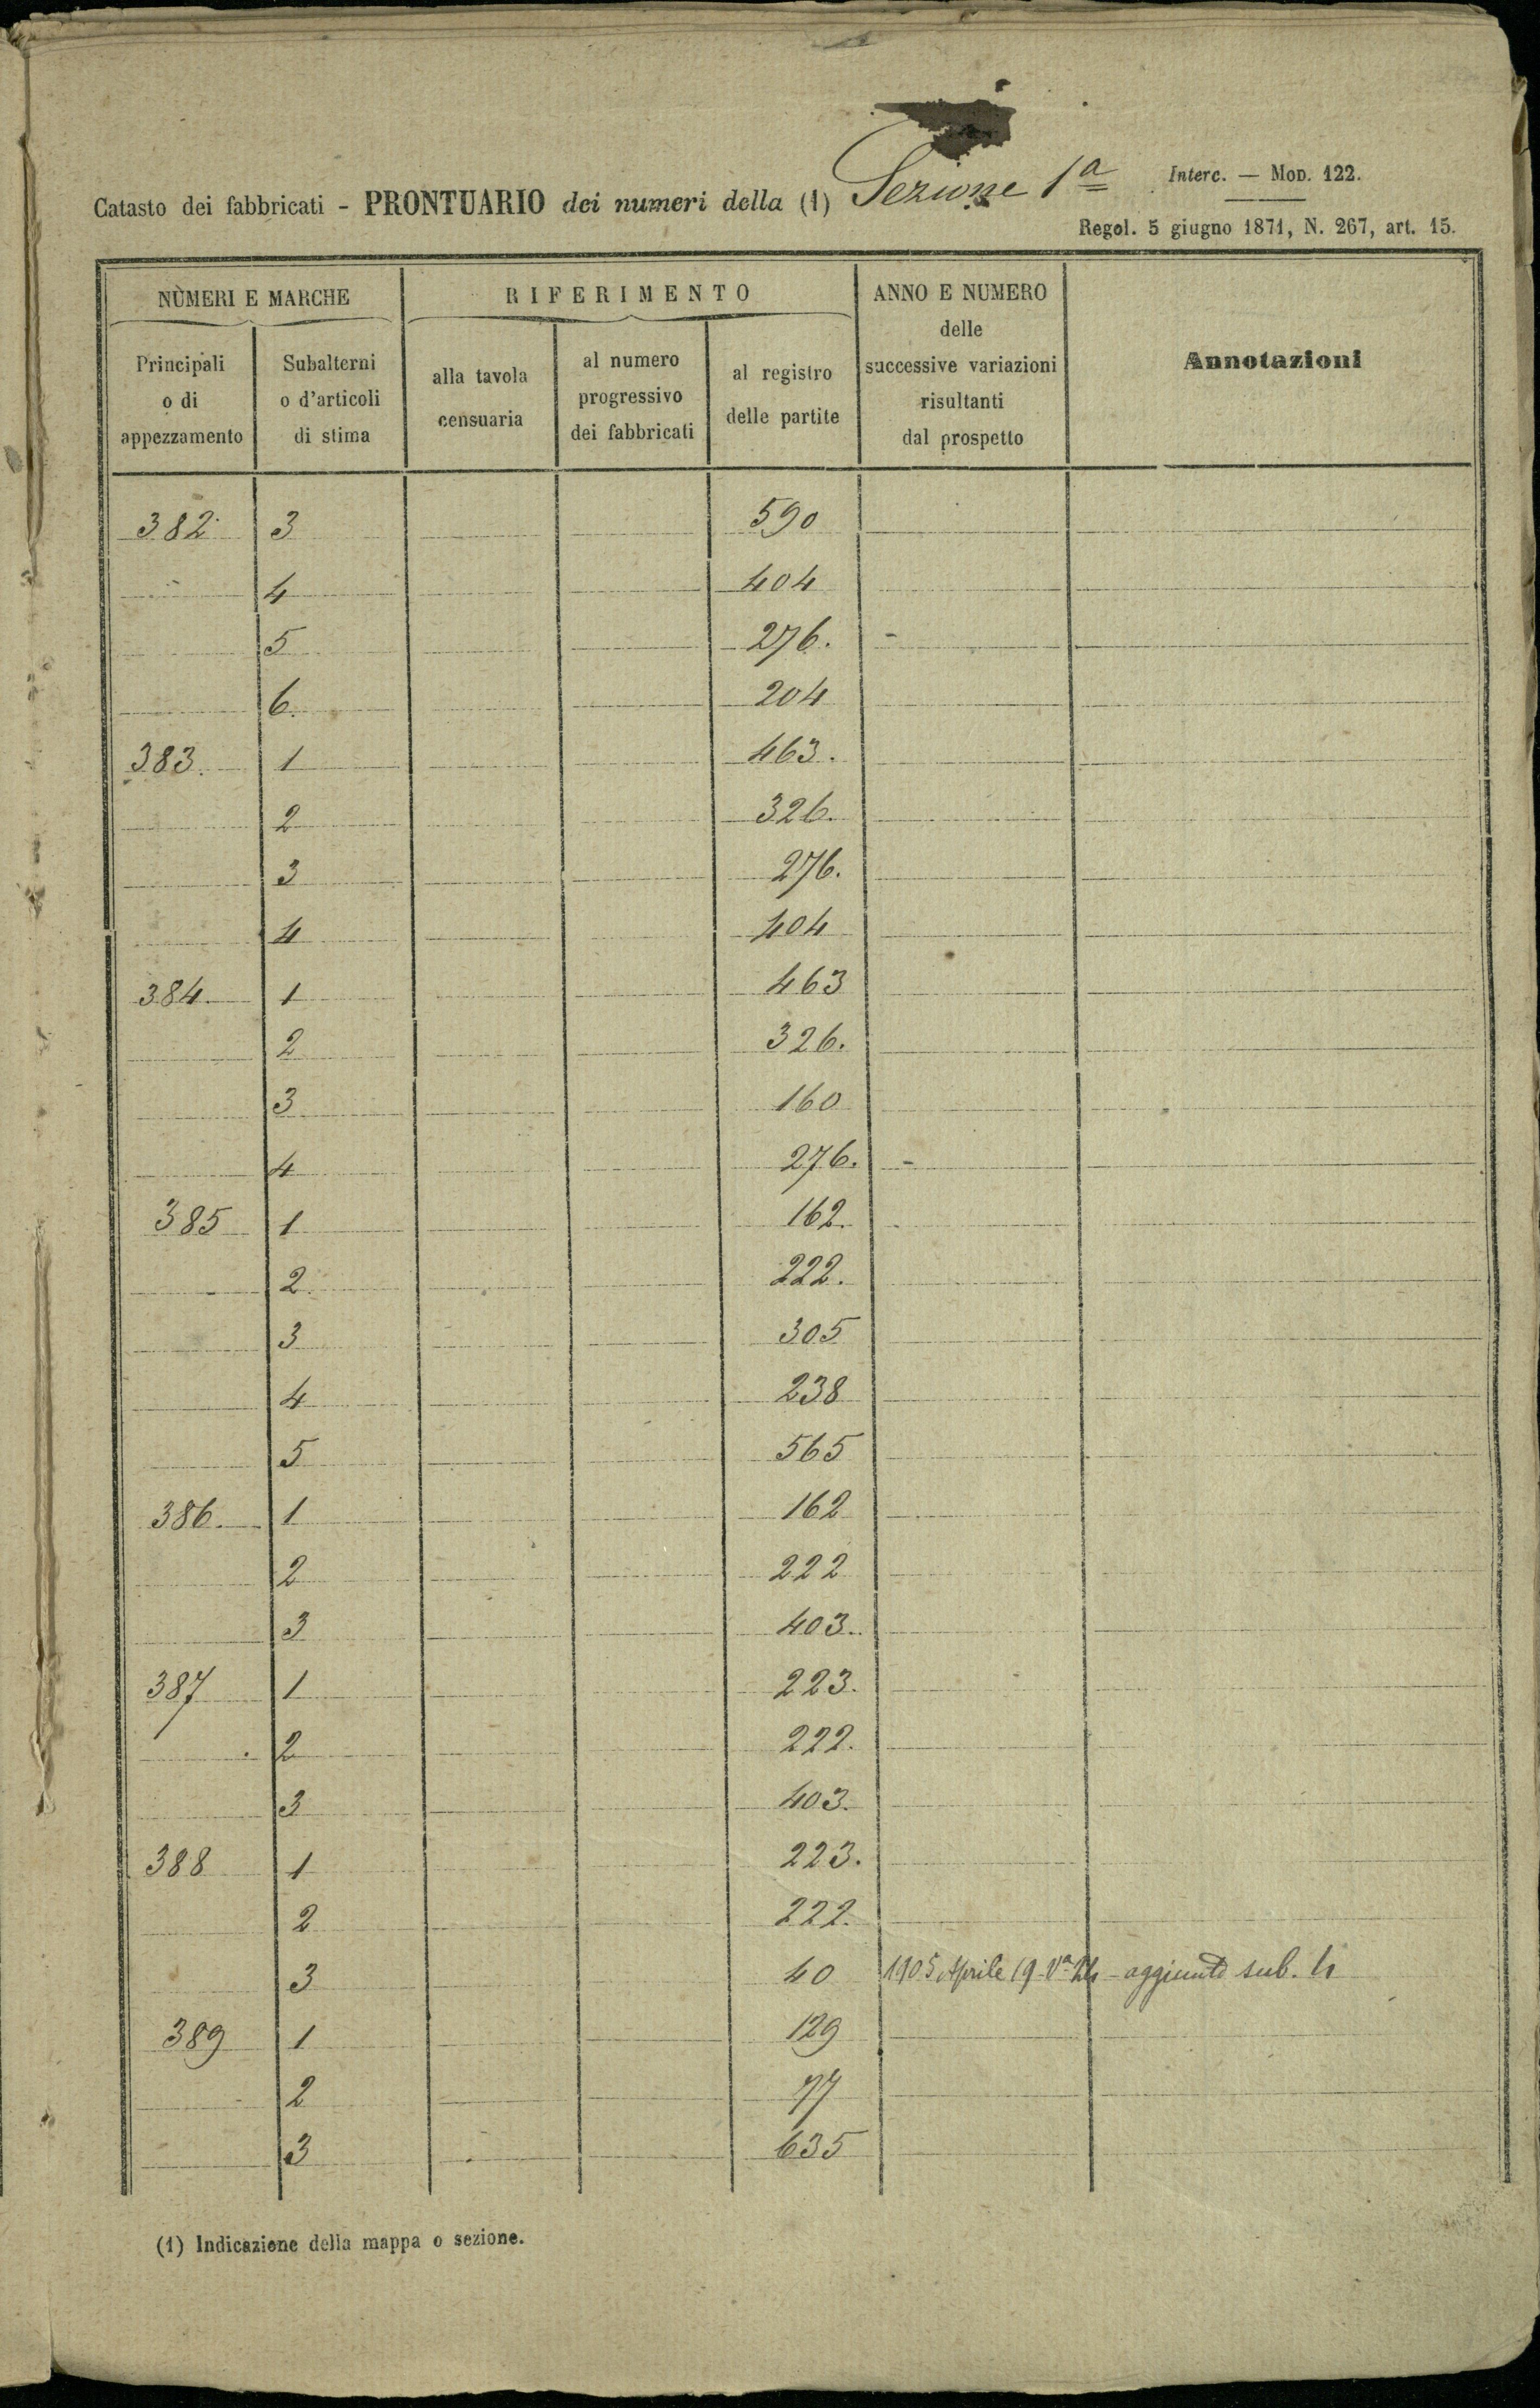 Catasto dei fabbricati - PRONTUARIO dei numeri della (1) Sezione 1ª
Interc. — Mod. 122.
Regol. 5 giugno 1871, N. 267, art. 15.
NÙMERI E MARCHE
RIFERIMENTO
ANNO E NUMERO
delle
successive variazioni
risultanti
dal prospetto
Annotazioni
Principali
o di
appezzamento
Subalterni
o d'articoli
di stima
alla tavola
censuaria
al numero
progressivo
dei fabbricati
al registro
delle partite
382 3 590
4 404
5 276. -
6. 204
383. 1 463.
2 326.
3 276.
4 404
384. 1 463
2 326.
3 160
4 276. -
385 1 162.
2 222.
3 305
4 238
5 565
386. 1 162
2 222
3 403.
387 1 223.
2 222.
3 403.
388 1 223.
2 222.
3 40 1905 Aprile 19 - aggiunto sub.
389 1 129
2 77
3 635
(1) Indicazione della mappa o sezione.